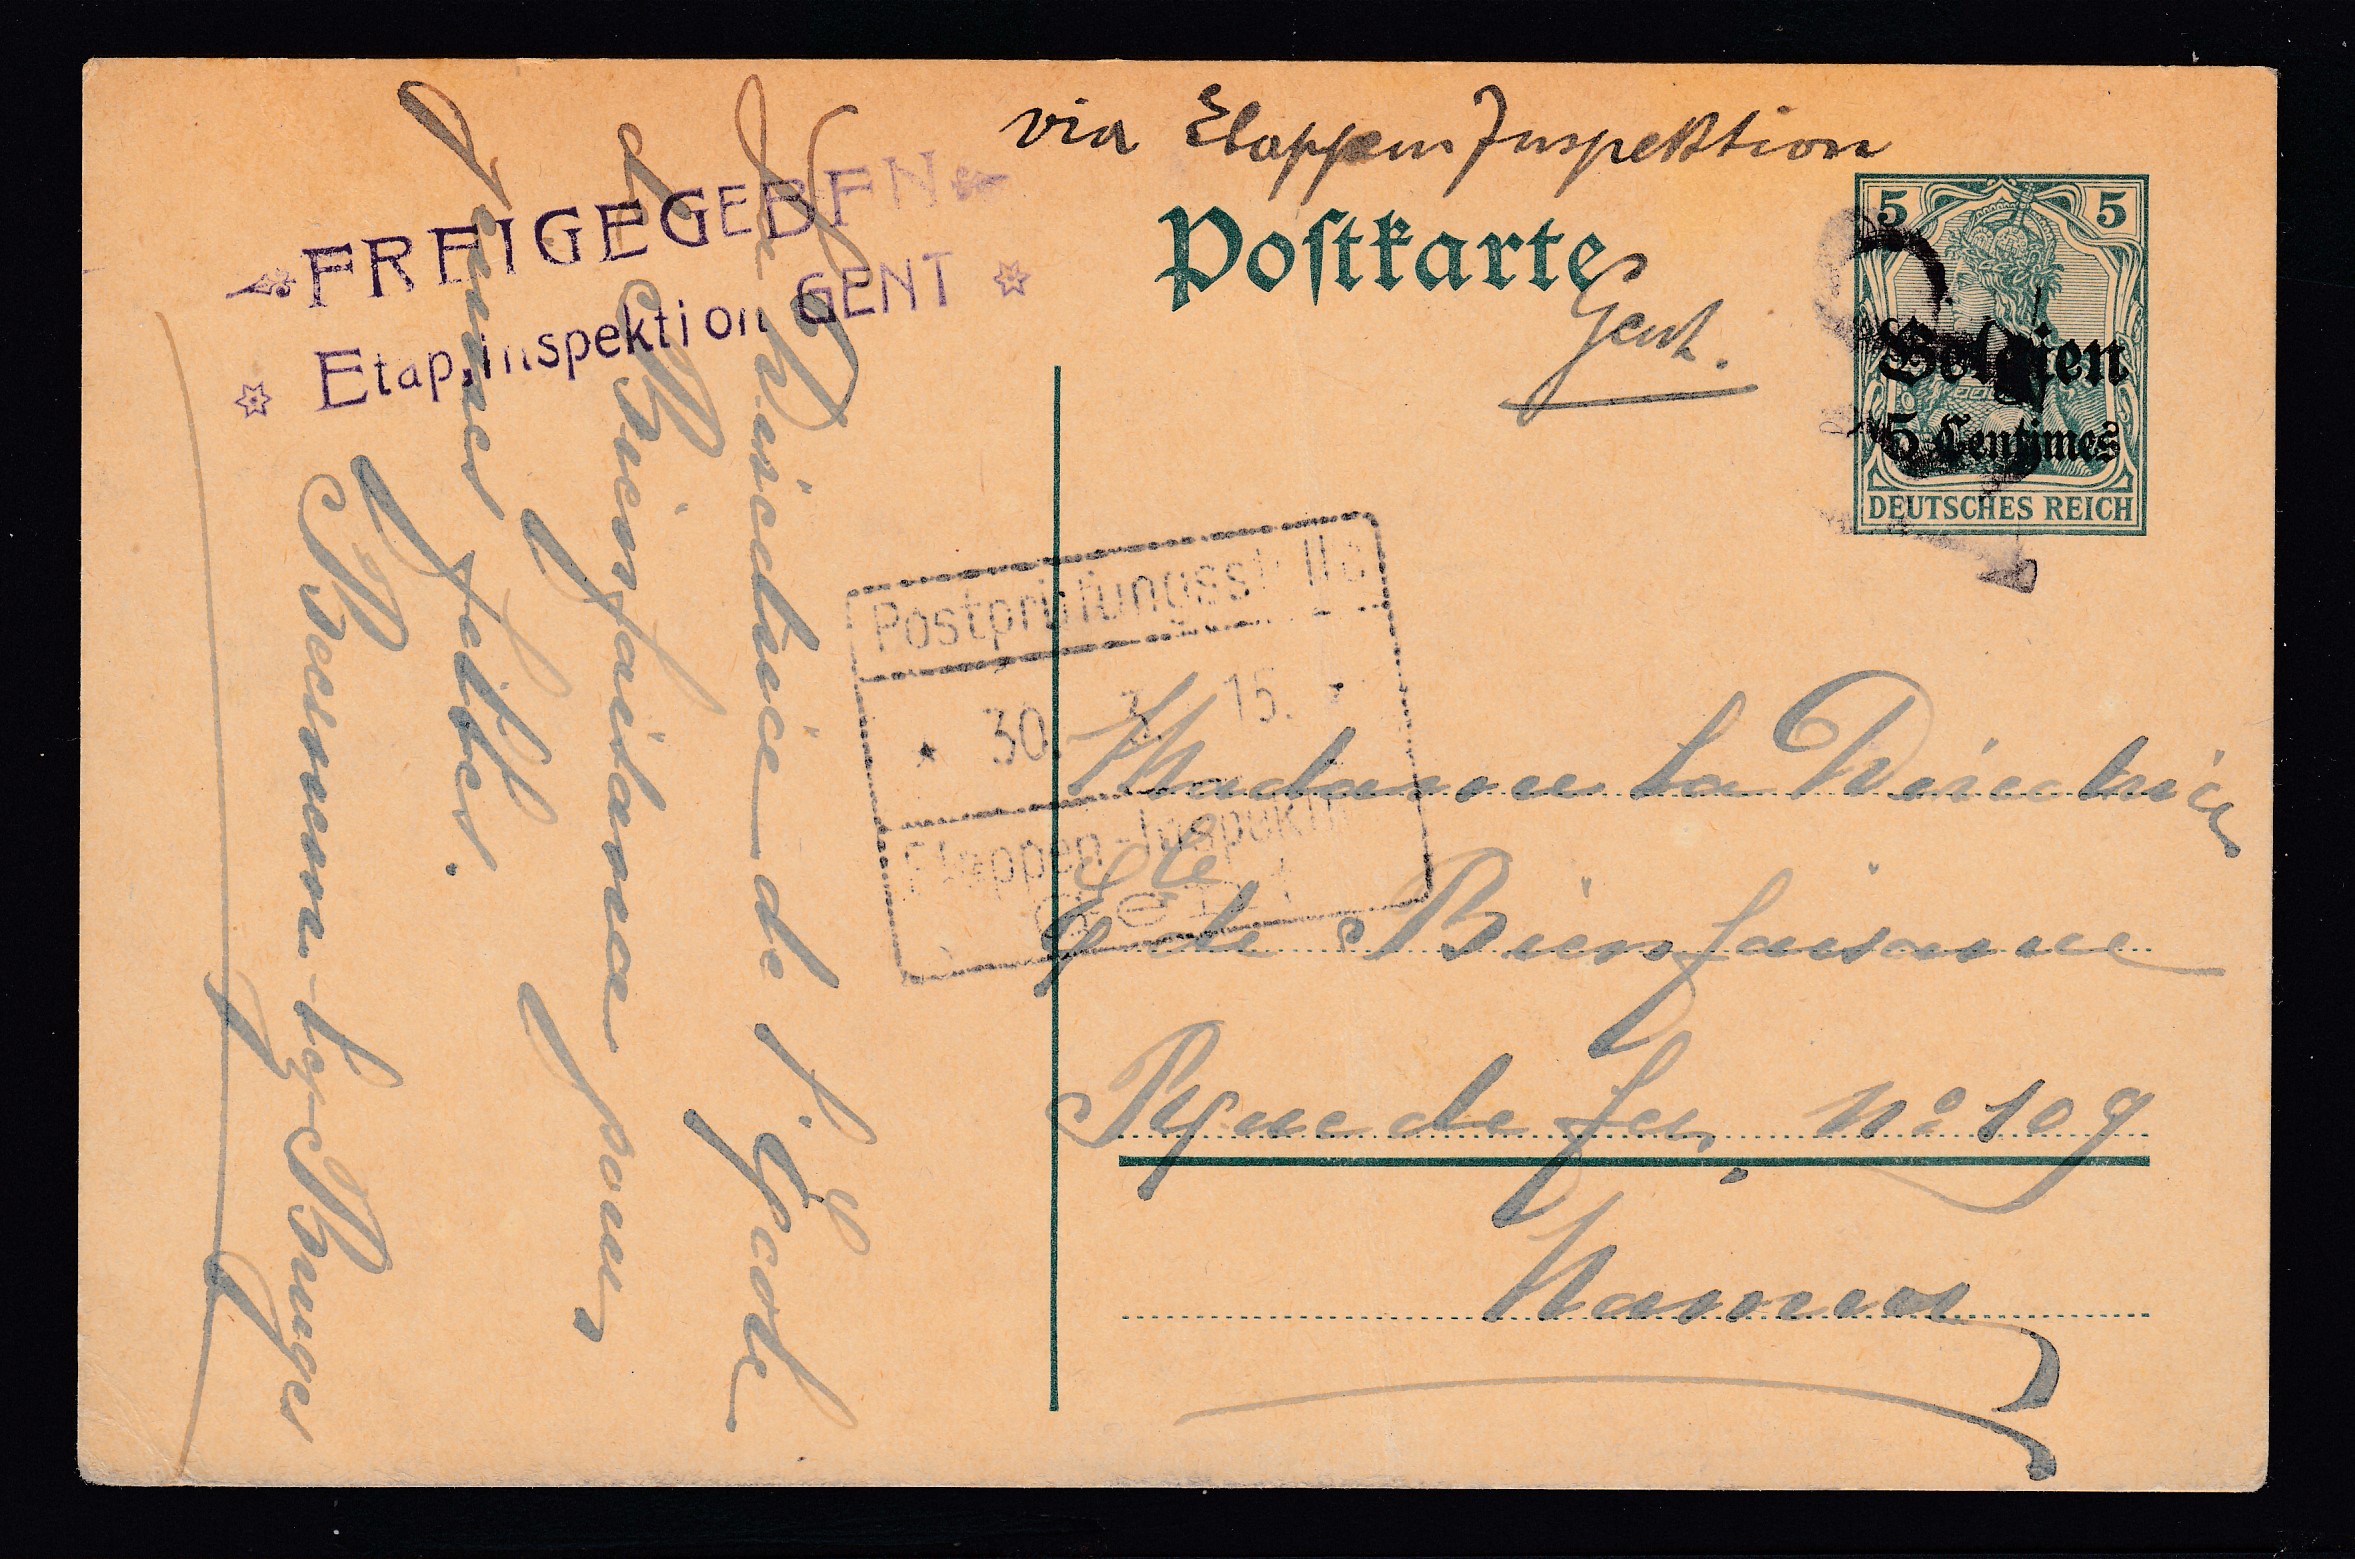 via Etappen Inspektion
Postkarte
Gent.
5 5
Belgien
5 Centimes
DEUTSCHES REICH
FREIGEGEBEN
Etap.Inspektion GENT
Postprüfungsstelle
30. 3. 15.
Etappen-Inspektion
Gent
Madame la Directrice
de
de Bienfaisance
Rue de Fer, N° 109
Namur
La Directrice de l'École
de Bienfaisance pour
jeunes filles.
Beernem-lez-Bruges